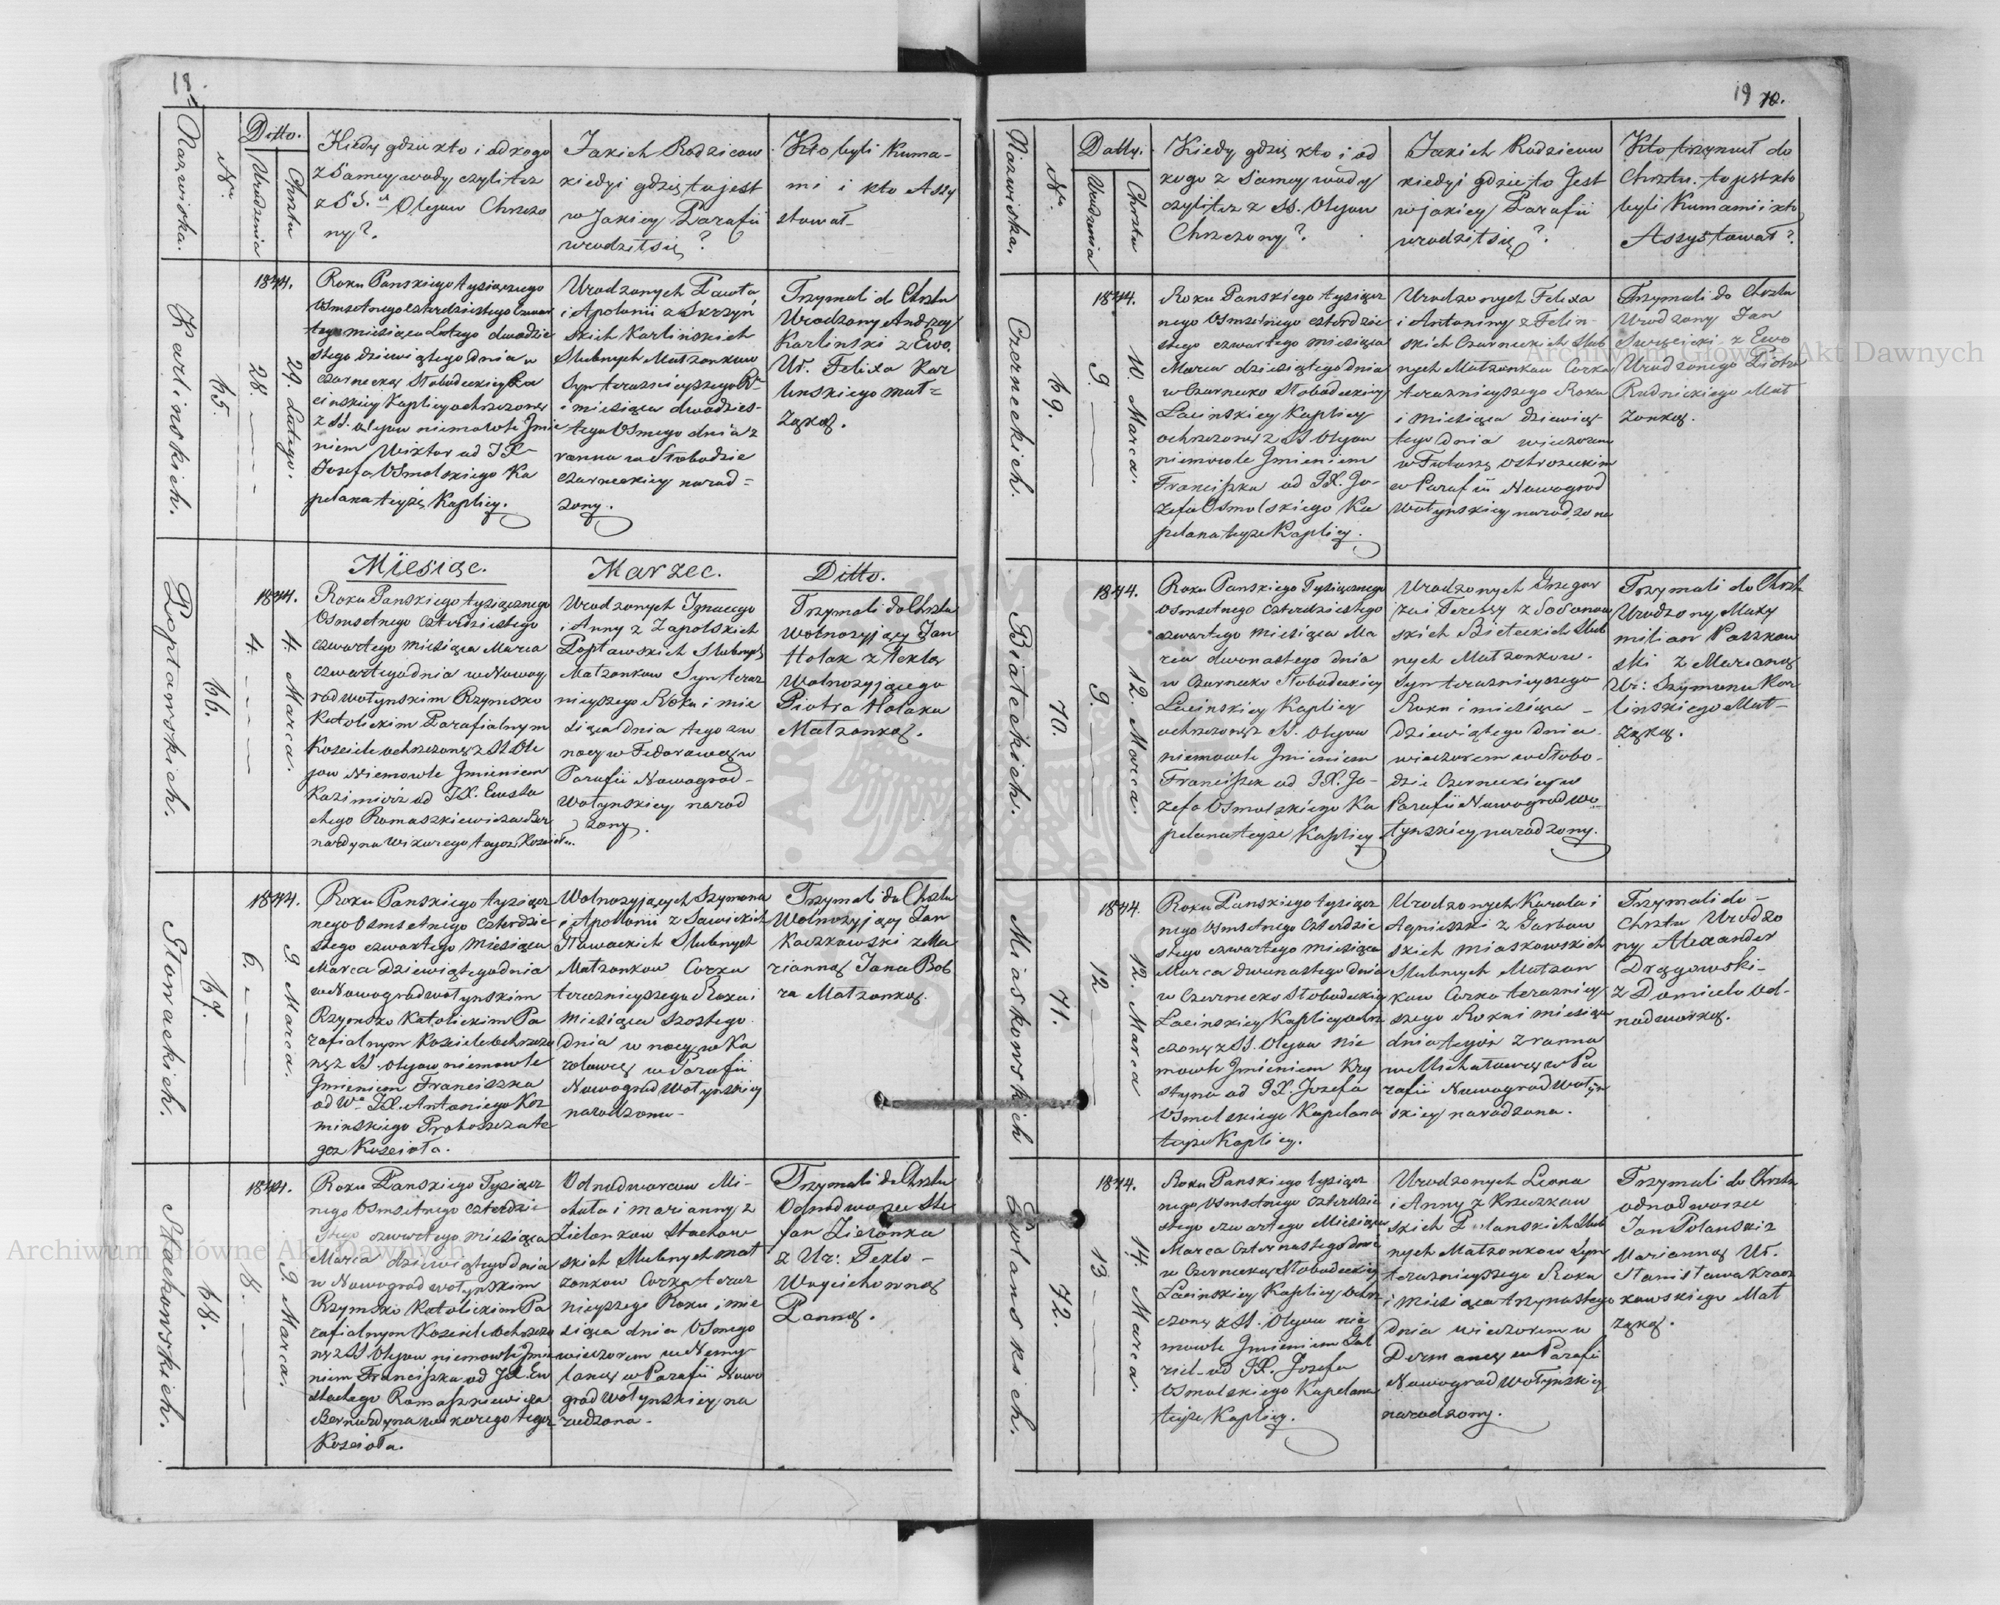 18
Nazwiska.
Nr.
Ditto.
Urodzenia
Chrztu
Kiedy gdzie kto i od kogo
z Samey wody czyli tez
z SS. Olejow Chrzczo
ny?
Jakich Rodzicow
kiedyi gdzie to jest
w Jakiey Parafii
urodził się?
Kto byli Kuma-
mi i kto Assy
stował
Karlinskich.
65
1844.
28.
29. Lutego.
Roku Panskiego tysiącznego
Osmsetnego czterdziestego czwar
tego miesiąca Lutego dwudzie
stego dziewiątego dnia w
czarneckey Słobodeckiey La
cinskiey Kaplicy ochrzczony
z SS. Olejow niemowle Imie
niem Wiktor od JX
Jozefa Osmolskiego Ka
pelana teyże Kaplicy.
Urodzonych Pawła
i Apolonii z Skrzyń
skich Karlinskich
Slubnych Małżonkow
Syn teraznieyszego Ru
i miesiąca dwudzies-
tego Osmego dnia z
ranna w Słobodzie
Czarneckiey narod=
zony.
Trzymali do Chrztu
Urodzony Andrzey
Karlinski z Ewą
Ur. Felixa Kar
linskiego mał=
żąką.
Miesiąc.
Marzec.
Ditto.
Popławskich.
66.
1844.
4.
4. Marca.
Roku Panskiego tysiącznego
Osmsetnego czterdziestego
czwartego Miesiąca Marca
czwartego dnia w Nowog
rodwołynskim Rzymsko
Katolickim Parafialnym
Kosciele ochrzczony z SS Ole
jow Niemowle Imieniem
Kazimierz od JX. Eusta
chego Romaszkiewicza Ber
nardyna Wikarego tegoż Koscioła.
Urodzonych Ignacego
i Anny z Zapolskich
Popławskich Slubnych
Małżonkow Syn teraz
nieyszego Roku i mie
siąca dnia tego zw
nocy w Fedorowcy w
Parafii Nowogrod-
Wołynskiey narod
zony.
Trzymali do Chrztu
Wolnozyjący Jan
Holak z Teklą
Wolnozyjącego
Piotra Holaka
Małżonką.
Słowackich.
67.
1844.
6.
9. Marca.
Roku Panskiego tysiącz
nego Osmsetnego czterdzie
stego czwartego Miesiąca
Marca dziewiątego dnia
w Nowogrodwołynskim
Rzymsko Katolickim Pa
rafialnym Kosciele ochrzczo
ny z SS. Olejow niemowle
Imieniem Franciszka
od Wo JX. Antoniego Koz
minskiego Proboszcza te
goz Koscioła.
Wolnozyjących Szymona
i Apollonii z Sawickich
Słowackich Slubnych
Małżonkow Corka
teraznieyszego Roku i
Miesiąca szostego
dnia w nocy w Ka
rolowcy w Parafii
Nowogrodwołynskiey
narodzona-
Trzymali do Chrztu
Wolnozyjący Jan
Kaczkowski z Ma
rianną Jana Bob
ra Małżonką.
Stachowskich.
68.
1844.
8.
9. Marca.
Roku Panskiego Tysiącz
nego Osmsetnego czterdzie
stego czwartego miesiąca
Marca dziewiątego dnia
w Nowogrodwołynskim
Rzymsko Katolickim Pa
rafialnym Kosciele ochrzczo
ny z SS Olejow niemowle Imie
niem Franciszka od JX. Eu
stachego Romaszkiewicza
Bernardyna wikarego tegoz
Koscioła.
Odnodworcow Mi-
chała i Marianny z
Zielonkow Stachow
skich Slubnych mał
żonkow Corka teraz
nieyszego Roku i mie
siąca dnia Osmego
wieczorem w Niemy-
lancy w Parafii Nowo
grodwołynskiey na
rodzona-
Trzymali do Chrztu
Odnodworzec Ste
fan Zielonka
z Ur: Teklo-
Woyciechowną
Panną.
19 10.
Nazwiska.
Nr.
Datty.
Urodzenia
Chrztu
Kiedy gdzie kto i od
kogo z Samey wody
czyli tez z SS. Olejow
Chrzczony?
Jakich Rodzicow
kiedyi gdzie to Jest
w jakiey Parafii
urodził się?
Kto trzymał do
Chrztu. to jest kto
byli Kumami i kto
Assystował?
Czerneckich.
69.
1844.
9.
10. Marca.
Roku Panskiego tysiącz
nego Osmsetnego czterdzie
stego czwartego miesiąca
Marca dziesiątego dnia
w Czarnecko Słobodeckiey
Lacinskiey Kaplicy
ochrzczony z SS Olejow
niemowle Imieniem
Franciszka od JX. Jo-
zefa Osmolskiego Ka
pelana teyze Kaplicy.
Urodzonych Felixa
i Antoniny z Felin-
skich Czarneckich Slub
nych Małżonkow Corka
teraznieyszego Roku
i Miesiąca dziewią
tego dnia wieczorem
w Futorze ostrozeckim
w Parafii Nowogrod
Wołynskiey narodzona
Trzymali do Chrztu
Urodzony Jan
Swięcicki z Ewo
Urodzonego Piotra
Rudnickiego Mał
żonką.
Białeckich.
70.
1844.
9.
12. Marca.
Roku Panskiego Tysiącznego
Osmsetnego czterdziestego
czwartego miesiąca Ma
rca dwonastego dnia
w Czarnecko Słobodeckiey
Lacinskiey Kaplicy
ochrzczony z SS. Olejow
niemowle Imieniem
Franciszek od JX. Jo-
zefa Osmolskiego Ka
pelana teyze Kaplicy
Urodzonych Grzegor
za i Teressy z Sosonow
skich Bieleckich Slub
nych Małżonkow-
Syn teraznieyszego
Roku i miesiąca -
dziewiątego dnia.
wieczorem w Słobo-
dzie Czerneckiey w
Parafii Nowogrodwo-
łynskiey narodzony.
Trzymali do Chrztu
Urodzony Maxy
milian Paszkow
ski z Marianą
Ur: Szymona Kar
linskiego Mał-
żąką.
Miaskowskich
71.
1844.
12
12. Marca
Roku Panskiego tysiącz
nego Osmsetnego Czterdzie
stego czwartego miesiąca
Marca dwunastego dnia
w Czarnecko Słobodeckiey
Lacinskiey Kaplicy ochrz
czony z SS. Olejow nie
mowle Imieniem Kry
styna od JX. Jozefa
Osmolskiego Kapelana
teyze Kaplicy.
Urodzonych Karola i
Agnieszki z Garbow
skich Miaskowskich
Slubnych Małzon
kow Corka terazniey
szego Roku i miesiąca
dnia tegoż z ranna
w Michałowcy w Pa
rafii Nowogrodwołyn
skiey narodzona.
Trzymali do-
Chrztu Urodzo
ny Alexander
Drągowski-
z Domicelo Od-
nodworką.
Polanskich.
72.
1844.
13
14. Marca.
Roku Panskiego tysiącz
nego Osmsetnego Czterdzie
stego czwartego Miesiąca
Marca czternastego dnia
w Czerneckey Słobodeckiey
Lacinskiey Kaplicy ochrz
czony z SS. Olejow nie
mowle Imieniem Gab
riel od JX. Jozefa
Osmolskiego Kapelana
teyze Kaplicy.
Urodzonych Leona
i Anny z Krzeczkow
skich Polanskich Slub
nych Małżonkow Syn
teraznieyszego Roku
i miesiąca trzynastego
dnia wieczorem w
Dermancy w Parafii
Nowogrodwołynskiey
narodzony.
Trzymali do Chrztu
odnodworzec
Jan Polanski z
Marianną Ur.
Stanisława Kracz
kowskiego Mał
żąką.
Archiwum Główne Akt Dawnych
Archiwum Główne Akt Dawnych